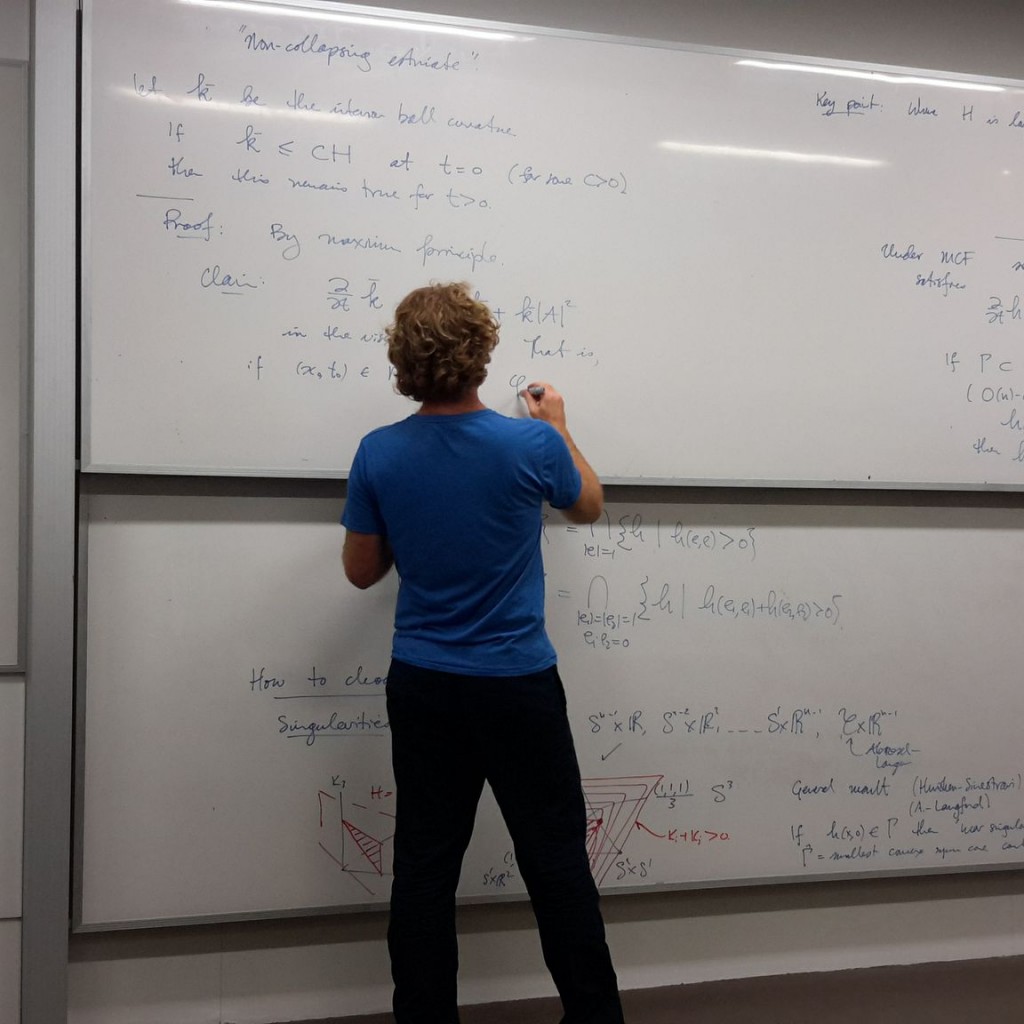 "Non-collapsing estimate".
Let k̄ be the interior ball curvature
If k̄ ≤ CH at t=0 (for some C>0)
then this remains true for t>0.
Proof: By maximum principle.
Claim: ∂/∂t k̄ + k̄|A|²
in the
That is,
if (x₀,t₀) ∈
φ
Key point: When H is
Under MCF
satisfies
∂/∂t h
If Γ ⊂
(O(n)-
then
= ⋂ {h | h(e,e)>0}
|e|=1
= ⋂ {h | h(e₁,e₁)+h(e₂,e₂)>0}
|e₁|=|e₂|=1
e₁·e₂=0
How to
Singularities
Sⁿ⁻¹×ℝ, Sⁿ⁻²×ℝ², ... S¹×ℝⁿ⁻¹, ×ℝⁿ⁻¹
✓
Abresch-
Langer
H=
(1,1,1)/3 S³
κᵢ+κⱼ>0
S¹×ℝ²
S¹×S¹
General result (Huisken-Sinestrari)
(A-Langford)
If h(x,0) ∈ Γ then "near
Γ = smallest convex